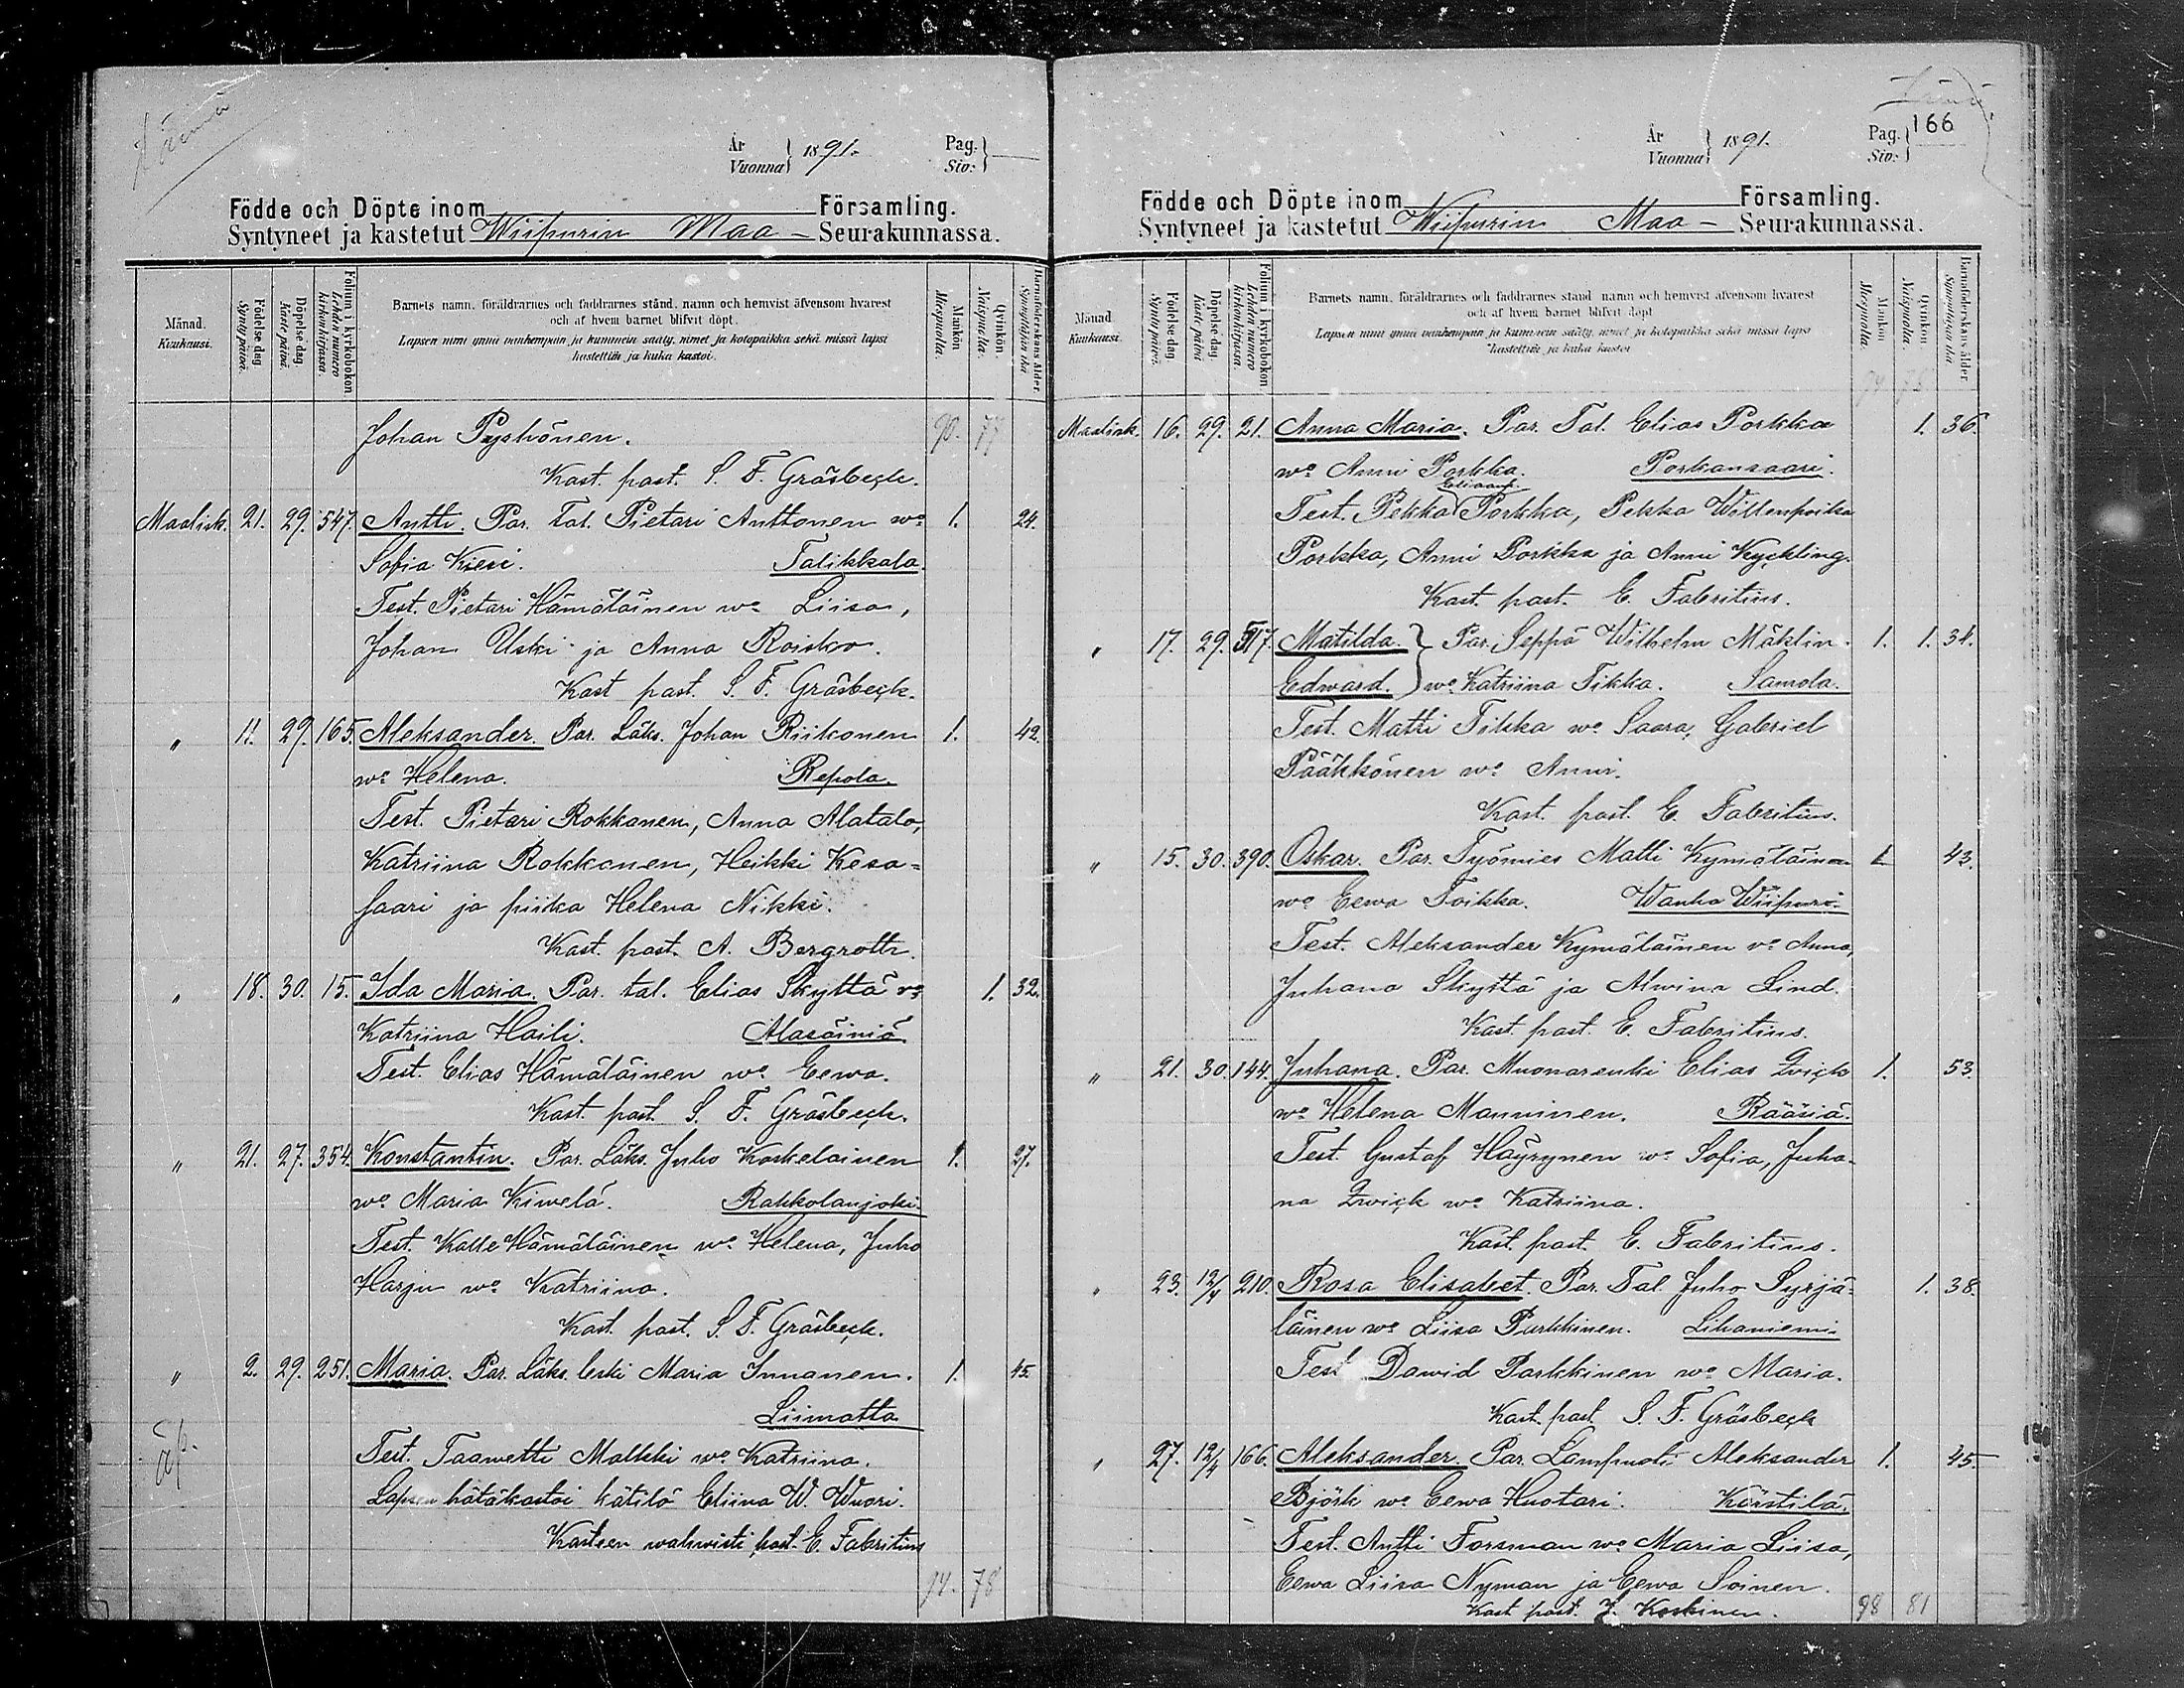 År
Vuonna 1891.
Pag.
Siv:
Födde och Döpte inom Församling.
Syntyneet ja kastetut Wiipurin Maa- Seurakunnassa.
Månad.
Kuukausi.
Födelse dag
Synty päivä.
Döpelse dag.
Kaste päivä.
Folium i kyrkobokon
Lehden numero
kirkonkirjassa.
Barnets namn, föräldrarnes och faddrarnes stånd, namn och hemvist äfvensom hvarest
och af hvem barnet blifvit döpt.
Lapsen nimi ynnä vanhempain ja kummein sääty, nimet ja kotopaikka sekä missä lapsi
kastettiin ja kuka kastoi.
Mankön
Miespuolia.
Qvinkön.
Naispuolia.
Barnaföderskans ålder
Synnyttäjän ikä
Johan Pyshönen. 90. 77
Kast. past. S. F. Gräsbeck.
Maalisk. 21. 29. 547. Antti. Par. tal. Pietari Anttonen wo 1. 24.
Sofia Kiesi. Talikkala.
Test. Pietari Hämäläinen wo Liisa,
Johan Uski ja Anna Roisko.
Kast past. S. F. Gräsbeck.
" 11. 29. 165. Aleksander. Par. Läks. Johan Riikonen 1. 42.
wo Helena. Repola.
Test. Pietari Rokkanen, Anna Alatalo,
Katriina Rokkanen, Heikki Kesa=
saari ja piika Helena Nikki.
Kast. past. A. Bergroth.
" 18. 30. 15. Ida Maria. Par. tal. Elias Skyttä vo 1. 32.
Katriina Haili. Alasäiniö.
Test. Elias Hämäläinen wo Eewa.
Kast. past. S. F. Gräsbeck.
" 21. 27. 354. Konstantin. Par. Läks. Juho Koskelainen 1. 27.
wo Maria Kiwelä. Rakkolanjoki.
Test. Kalle Hämäläinen wo Helena, Juho
Harju wo Katriina.
Kast. past. S. F. Gräsbeck.
" 2. 29. 251. Maria. Par. Läks. leski Maria Innanen. 1. 45.
Liimatta
äp. Test. Taawetti Malkki wo Katriina.
Lapsen hätäkastoi kätilö Eliina W. Wuori.
Kasteen wahwisti past. E. Fabritius
94. 78
År
Vuonna 1891.
Pag.
Siv: 166
Födde och Döpte inom Församling.
Syntyneet ja kastetut Wiipurin Maa- Seurakunnassa.
Månad.
Kuukausi.
Födelse dag
Synty päivä.
Döpelse dag.
Kaste päivä
Folium i kyrkobokon
Lehden numero
kirkonkirjassa.
Barnets namn, föräldrarnes och faddrarnes stånd, namn och hemvist äfvensom hvarest
och af hvem barnet blifvit döpt
Lapsen nimi ynnä vanhempain ja kummein sääty, nimet ja kotopaikka sekä missä lapsi
kastettiin ja kuka kastoi
Mankön
Miespuolia.
Qvinkön
Naispuolia.
Barnaföderskans ålder
Synnyttäjän ikä
94 78
Maalisk. 16. 29. 21. Anna Maria. Par. Tal. Elias Porkka 1. 36.
wo Anni Porkka. Porkansaari.
Test. Pekka Eliaanp. Porkka, Pekka Willenpoika
Porkka, Anni Porkka ja Anni Kyckling.
Kast. past. E. Fabritius.
" 17. 29. 517. Matilda. Par. Seppä Wilhelm Mäklin. 1. 1. 31.
Edward. wo Katriina Tikka. Samola.
Test. Matti Tikka wo Saara, Gabriel
Pääkkönen wo Anni.
Kast. past. E. Fabritius.
" 15. 30. 390. Oskar. Par. Työmies Matti Kymäläinen 1. 43.
wo Eewa Toikka. Wanha Wiipuri.
Test. Aleksander Kymäläinen vo Anna,
Juhana Skyttä ja Alwina Lind.
Kast. past. E. Fabritius.
" 21. 30. 144. Juhana. Par. Muonarenki Elias Zwick 1. 53.
wo Helena Manninen. Rääsiä.
Test. Gustaf Häyrynen wo Sofia, Juha-
na Zwick wo Katriina.
Kast. past. E. Fabritius.
" 23. 12/4 210. Rosa Elisabet. Par. Tal. Juho Syrjä- 1. 38.
läinen wo Liisa Purkkinen. Lihaniemi
Test Dawid Parkkinen wo Maria.
Kast. past. S. F. Gräsbeck
" 27. 12/4 166. Aleksander. Par. Lampuoti Aleksander 1. 45.
Björk wo Eewa Huotari. Kärstilä.
Test. Antti Forsman wo Maria Liisa,
Eewa Liisa Nyman ja Eewa Soinen.
Kast past. J. Koskinen. 98 81